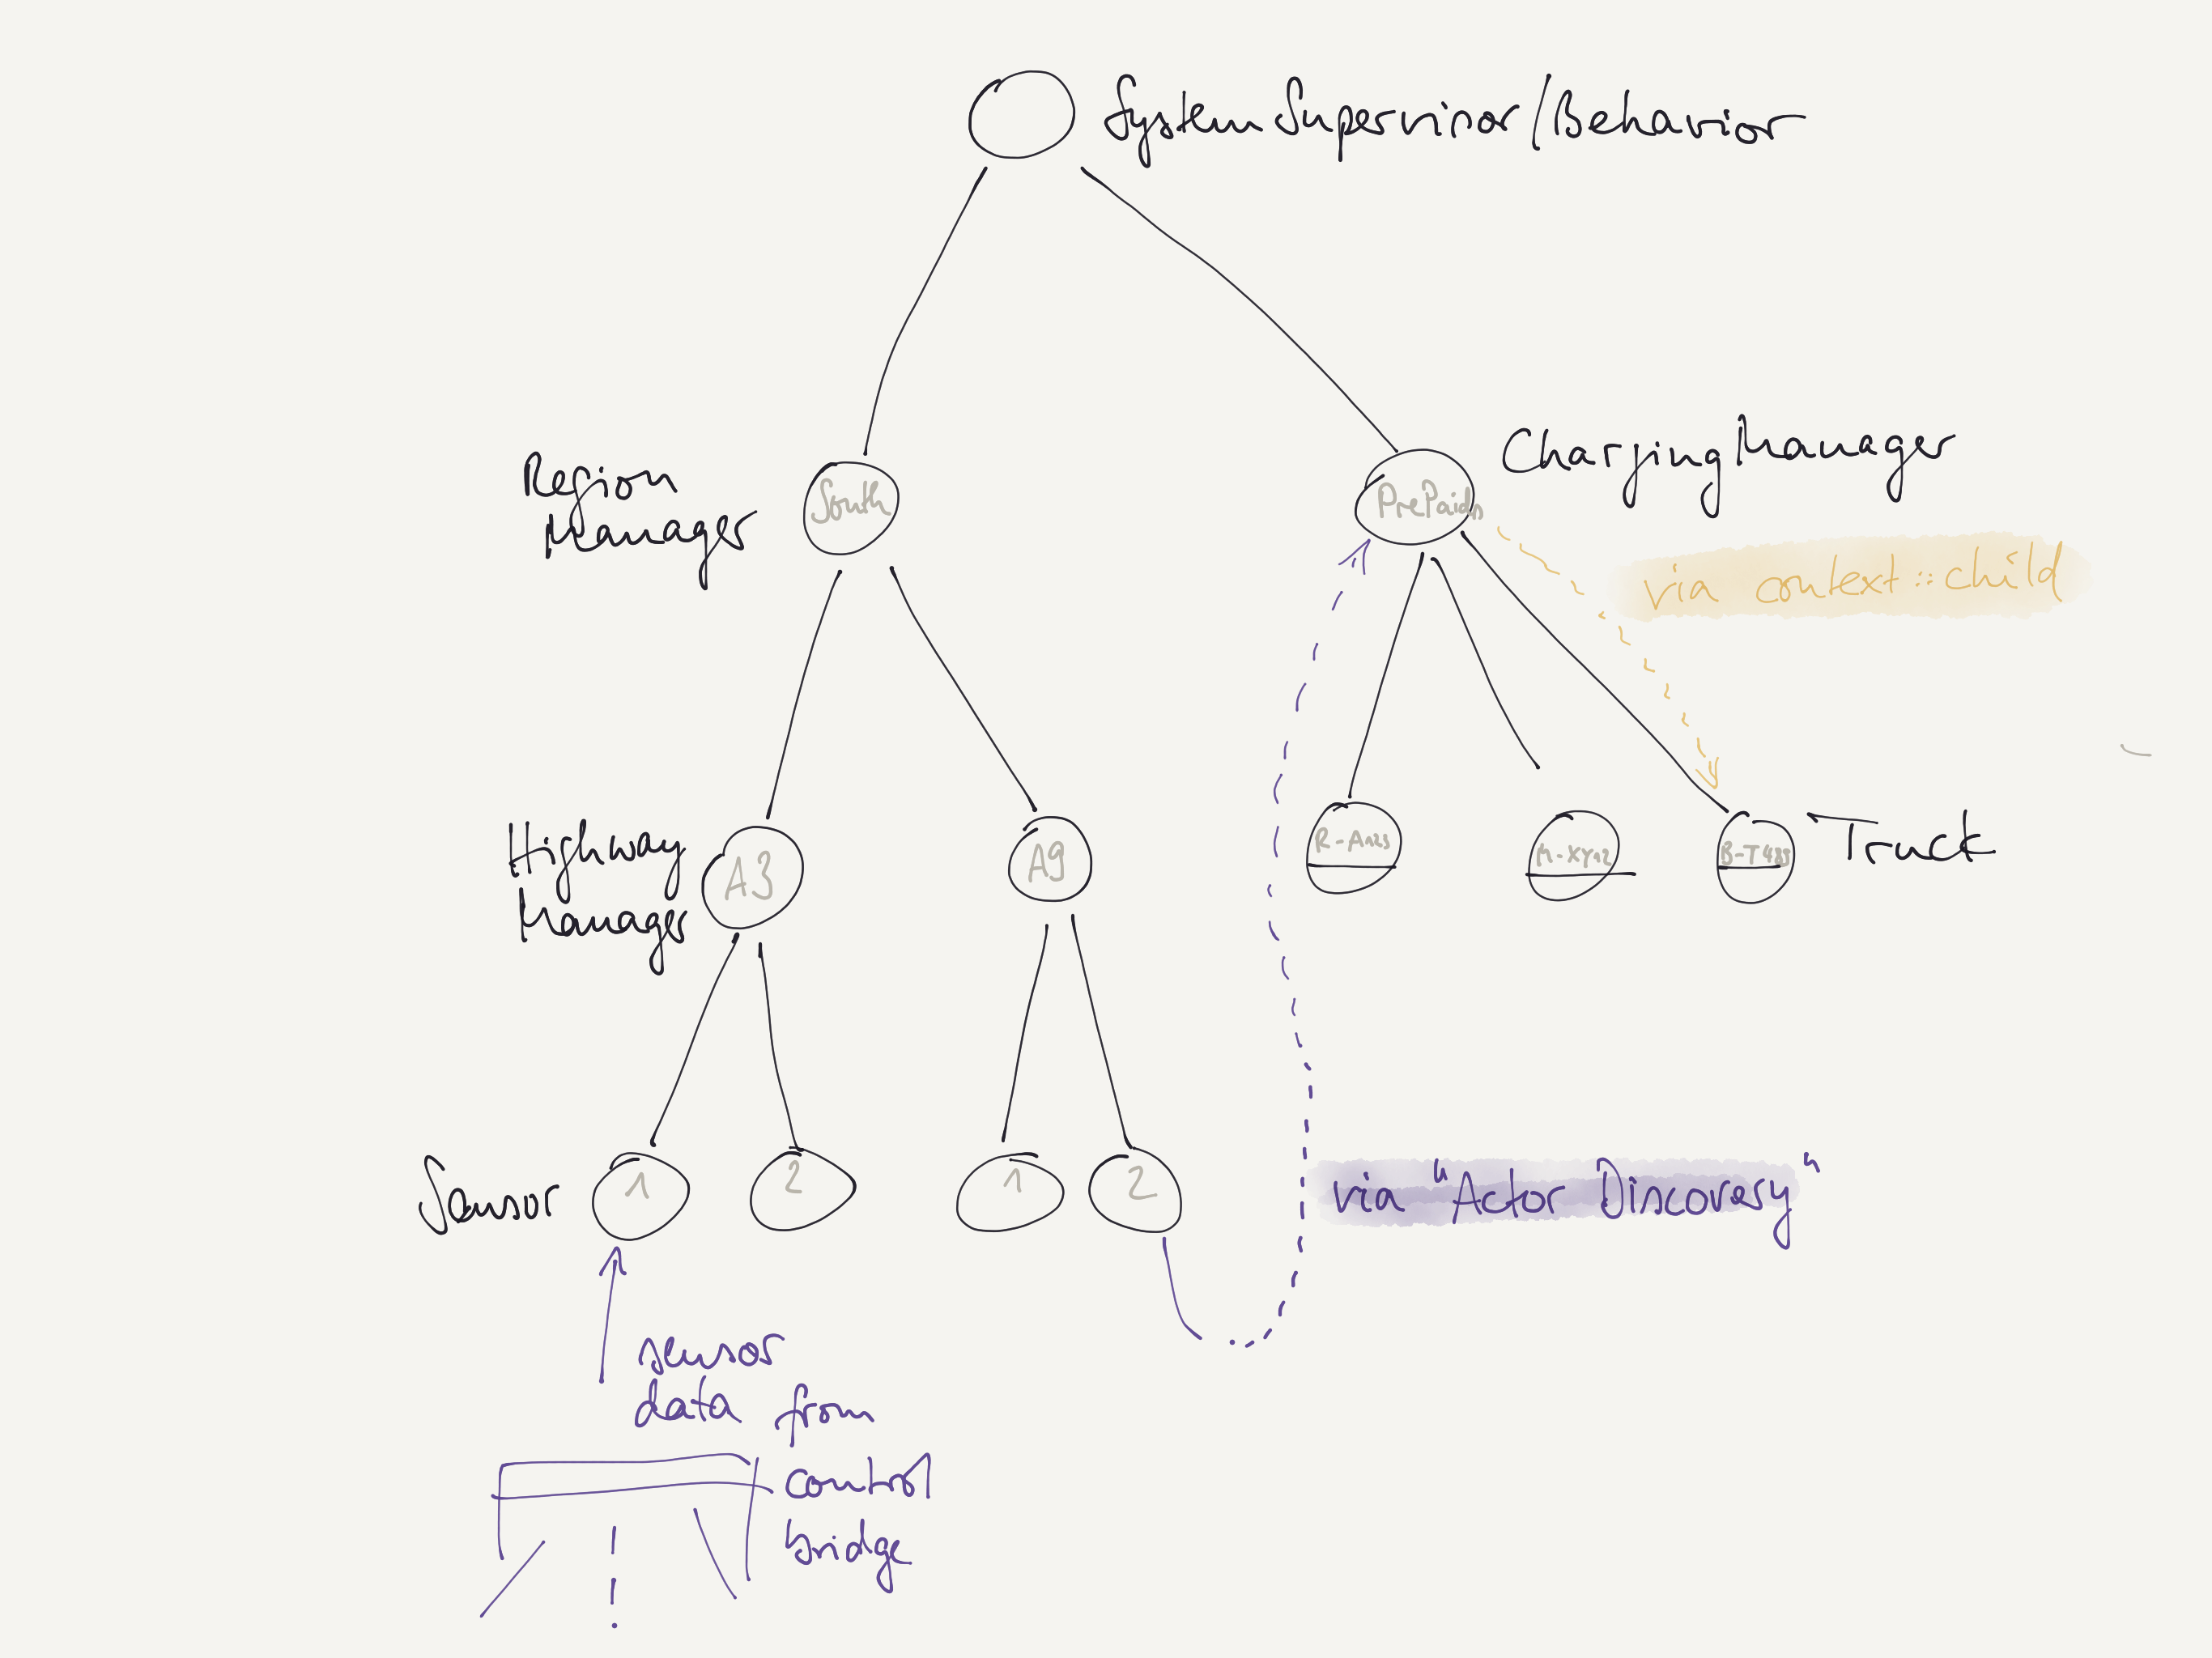 SystemSupervisor/Behavior
Region
Manager
South
PrePaid
ChargingManager
via context::child
Highway
Manager
A3
A9
R-A123
M-XY12
B-T483
Truck
Sensor
1
2
1
2
via "Actor Discovery"
sensor
data from
control
bridge